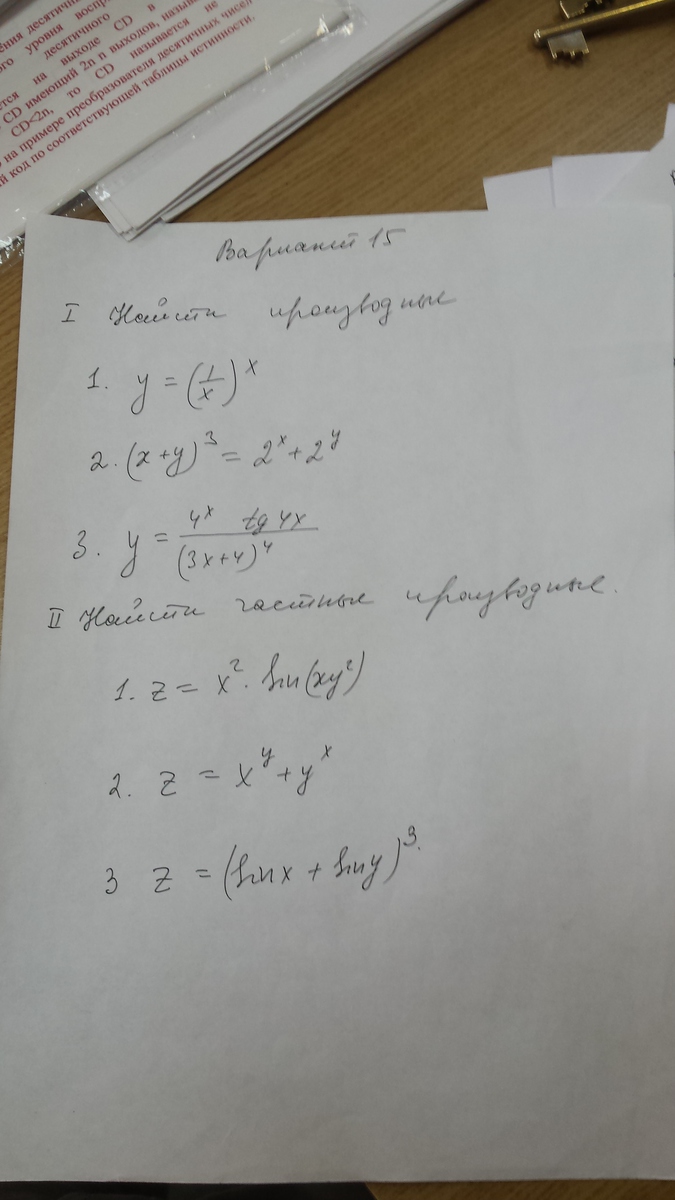 ения десятичн
ого уровня воспр
десятичного
ется на выходе CD в
CD имеющий 2n n выходов, назыв
CD<2n, то CD называется не
на примере преобразователя десятичных чисел
ый код по соответствующей таблицы истинности.
Вариант 15
I Найти производные
1. y = (1/x)^x
2. (x+y)^3 = 2^x + 2^y
3. y = (4^x tg 4x)/(3x+4)^4
II Найти частные производные.
1. z = x^2 · sin(xy^2)
2. z = x^y + y^x
3 z = (sin x + sin y)^3.